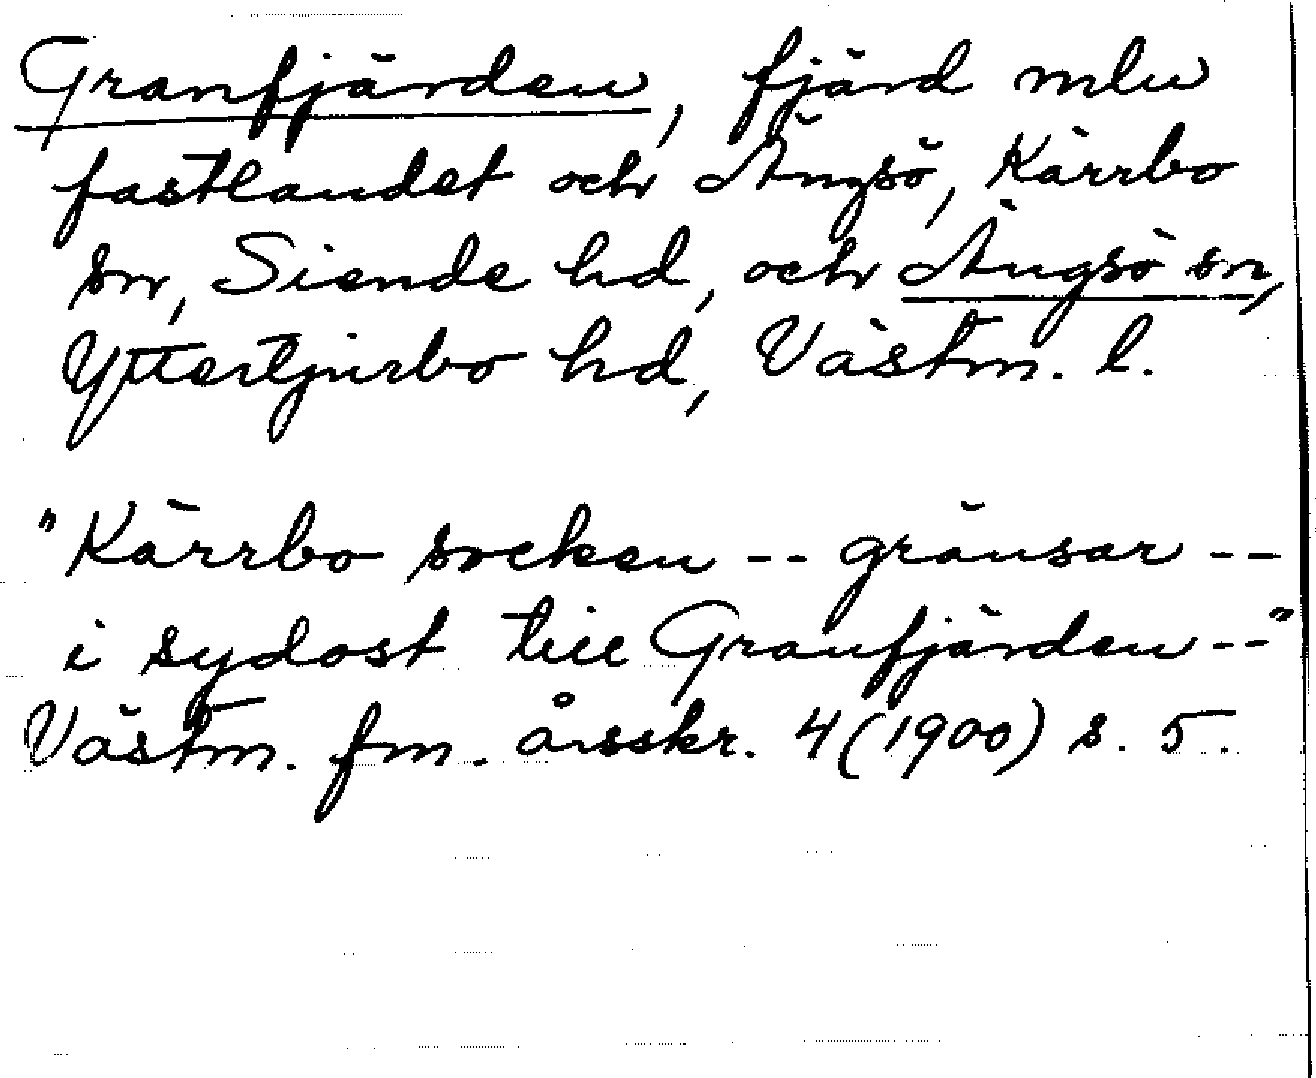 Granfjärden, fjärd mlu
fastlandet och Ängsö, Kärrbo
sn, Siende hd, och Ängsö sn,
Yttertjurbo hd, Västm. l.
"Kärrbo socken -- gränsar --
i sydost till Granfjärden --"
Västm. fm. årsskr. 4 (1900) s. 5.